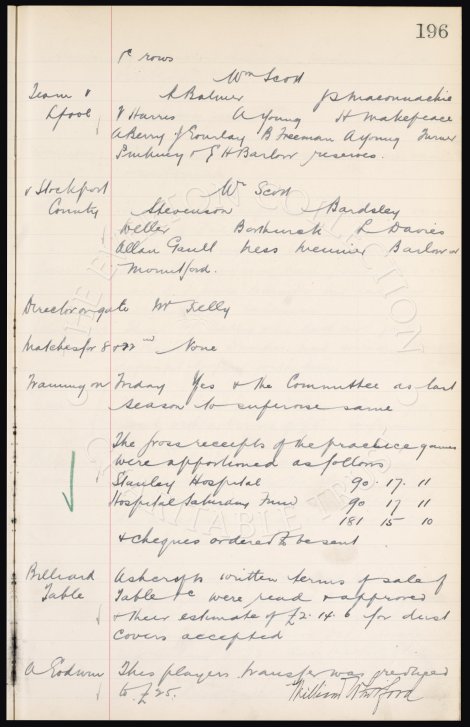 196
& rows
Wm Scott
Team v R Balmer J S Maconnachie
Lpool V Harris A Young H Makepeace
A Berry J Gourlay B Freeman A Young Turner
& E H Barlow reserves.
v Stockport Wm Scott
County Stevenson Bardsley
Weller Borthwick L Davies
Allan Gault Hess Meunier Barlow or
Mountford.
Director on gate Mr Kelly
Matches for 8 & 22nd None
Training on Friday Yes & the Committee as last
season to supervise same
The gross receipts of the practice games
were apportioned as follows
Stanley Hospital 90 . 17 . 11
Hospital Saturday Fund 90 17 11
181 15 10
& cheques ordered to be sent
Billiard Ashcrofts written terms of sale of
Table Table &c were read & approved
& their estimate of £2.14.6 for dust
covers accepted
A Godwin This players transfer was reduced
to £25.
William Whitford
THE EVERTON COLLECTION
CHARITABLE TRUST